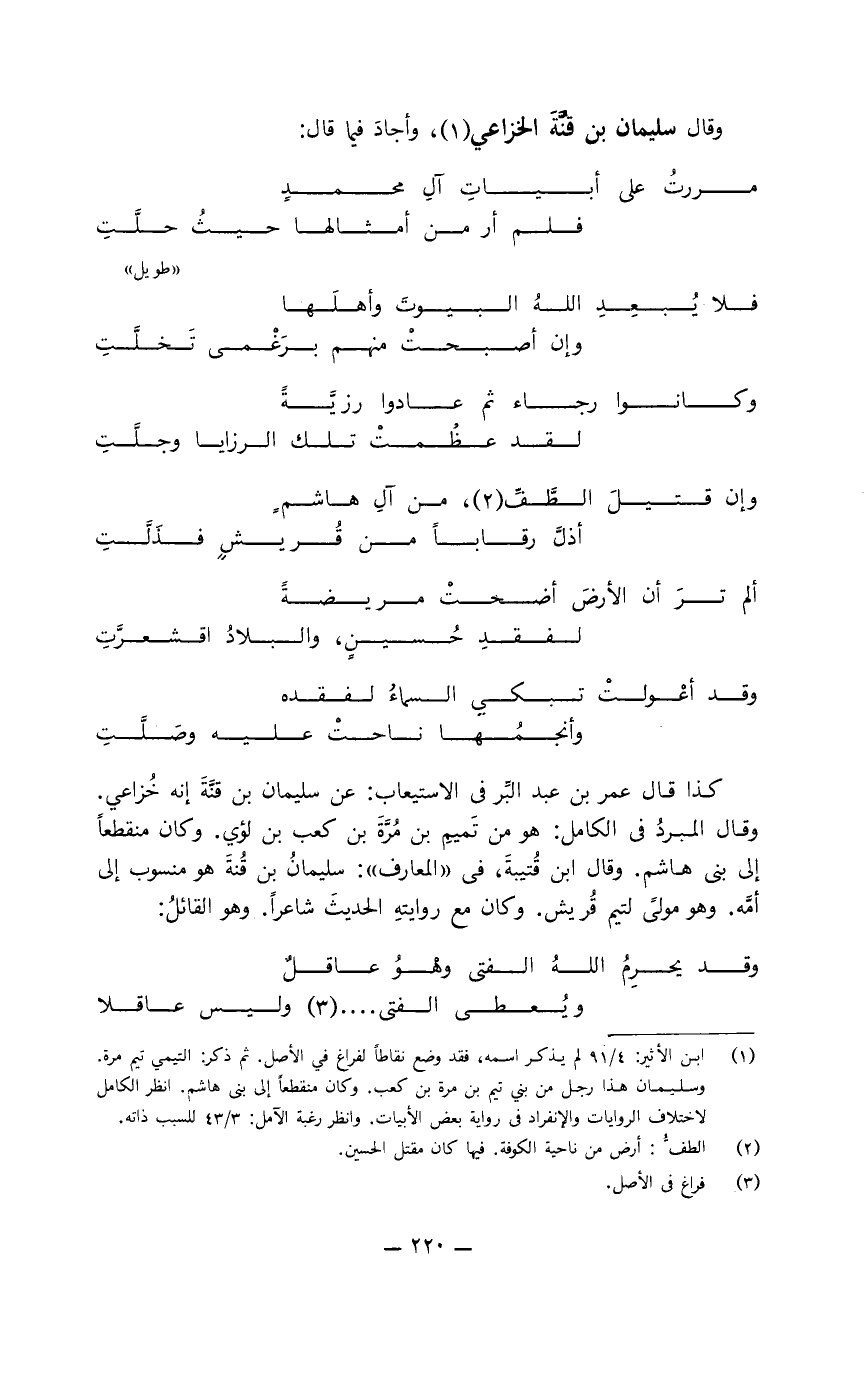 وقال سليمان بن قنَّةَ الخزاعي(١)، وأجادَ فيما قال:
مررتُ على أبياتِ آلِ محمدٍ
فلم أر من أمثالها حيثُ حلَّتِ
«طويل»
فلا يُبعِدِ اللهُ البيوتَ وأهلَها
وإن أصبحتْ منهم برَغْمى تَخلَّتِ
وكانوا رجاء ثم عادوا رزيَّةً
لقد عظُمتْ تلك الرزايا وجلَّتِ
وإن قتيلَ الطَّفِّ(٢)، من آلِ هاشمٍ
أذلَّ رقاباً من قُريشٍ فذَلَّتِ
ألم ترَ أن الأرضَ أضحتْ مريضةً
لفقدِ حُسينٍ، والبلادُ اقشعرَّتِ
وقد أعْولتْ تبكي السماءُ لفقده
وأنجمُها ناحتْ عليه وصَلَّتِ
كذا قال عمر بن عبد البِّر فى الاستيعاب: عن سليمان بن قنَّةَ إنه خُزاعي.
وقال المبردُ فى الكامل: هو من تَميمِ بن مُرَّةَ بن كعب بن لؤي. وكان منقطعاً
إلى بنى هاشم. وقال ابن قُتيبةَ، فى «المعارف»: سليمانُ بن قُنةَ هو منسوب إلى
أمَّه. وهو مولىً لتيم قُريش. وكان مع روايتهِ الحديثَ شاعراً. وهو القائلُ:
وقد يحرِمُ اللهُ الفتى وهْوُ عاقلٌ
ويُعطى الفتى....(٣) وليس عاقلا
(١) ابن الأثير: ٩١/٤ لم يذكر اسمه، فقد وضع نقاطاً لفراغ في الأصل. ثم ذكر: التيمي تيم مرة.
وسليمان هذا رجل من بني تيم بن مرة بن كعب. وكان منقطعاً إلى بنى هاشم. انظر الكامل
لاختلاف الروايات والإنفراد فى رواية بعض الأبيات. وانظر رغبة الآمل: ٤٣/٣ للسبب ذاته.
(٢) الطفُّ : أرض من ناحية الكوفة. فيها كان مقتل الحسين.
(٣) فراغ فى الأصل.
— ٢٢٠ —